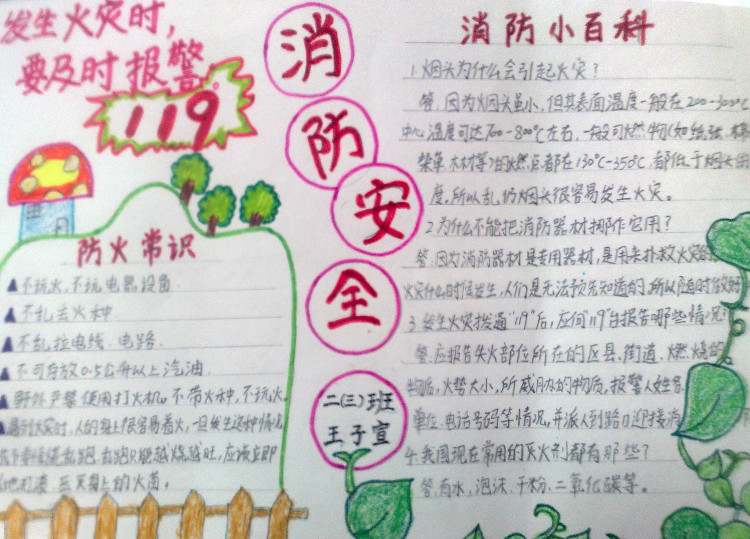 发生火灾时,
要及时报警。
119
防火常识
不玩火,不玩电器设备.
不乱丢火种.
不乱拉电线.电路.
不可存放0.5公升以上汽油.
野外严禁使用打火机。不带火种,不玩火。
遇到火灾时,人的身上很容易着火,一旦发生这种情况
乱跑,乱跑只能越烧越旺,应该立即
地打滚,压灭身上的火苗。
消
防
安
全
二(三)班
王子宣
消防小百科
1.烟头为什么会引起火灾?
答:因为烟头虽小,但其表面温度一般在200-300℃
中心温度可达700-800℃左右,一般可燃物(如纸张、棉
柴草、木材等)的燃点都在130℃-350℃,都低于烟头的
度,所以乱扔烟头很容易发生火灾。
2.为什么不能把消防器材挪作它用?
答:因为消防器材是专用器材,是用来扑救火灾的
火灾什么时候发生,人们是无法预先知道的,所以应随时
3.发生火灾拨通"119"后,应向"119"台报告哪些情况?
答:应报告失火部位所在的区县、街道、燃烧的
物质、火势大小,所威胁的物质,报警人姓名
单位、电话号码等情况,并派人到路口迎接消
4.我国现在常用的灭火剂都有那些?
答:有水,泡沫、干粉、二氧化碳等。